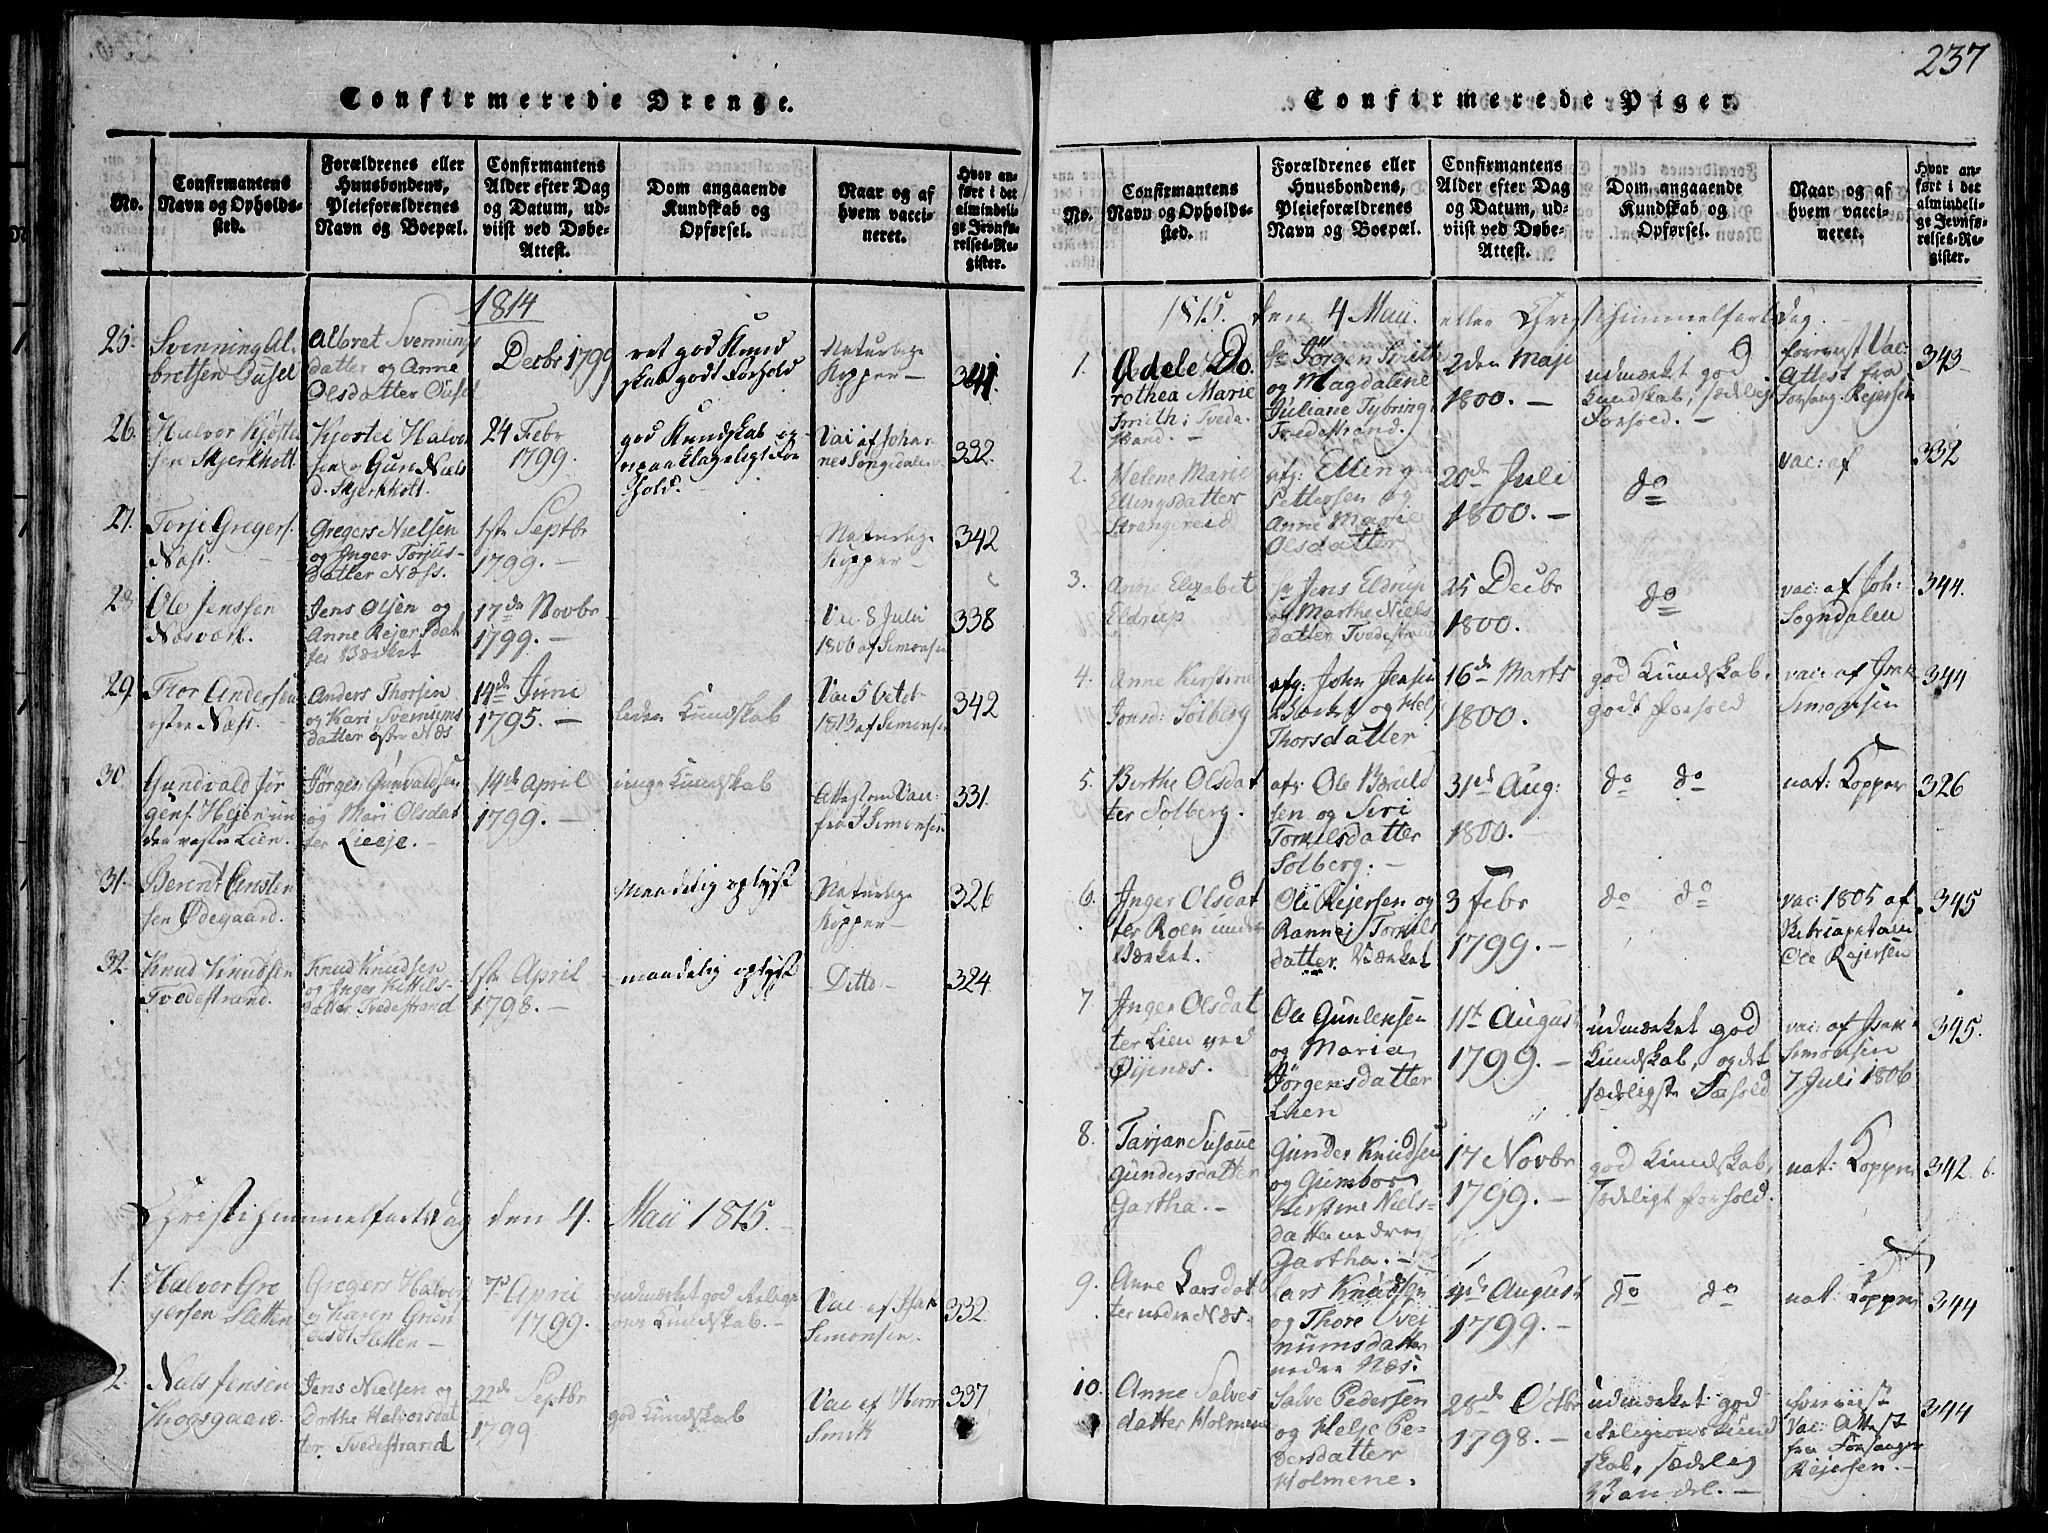 237
Confirmerede Drenge.
No.
Confirmantens
Navn og Opholds-
sted.
Forældrenes eller
Huusbondens,
Pleieforældrenes
Navn og Boepæl.
Confirmantens
Alder efter Dag
og Datum, ud-
viist ved Døbe-
Attest.
Dom angaaende
Kundskab og
Opførsel.
Naar og af
hvem vacci-
neret.
Hvor an-
ført i det
almindeli-
ge Jevnfø-
relses-Re-
gister.
1814
25.
Svenning Al-
bretsen Dusel
Albret Svennings
datter og Anne
Olsdatter Dusel
Decbr 1799
ret god Kund
skab godt Forhold
Naturlige
Kopper
341.
26.
Halvor Kjøstel
sen Skjerkholt
Kjostel Halvor
sen og Gun Niels
d. Skjerkholt.
24 Febr
1799.
god Kundskab og
upaaklageligt For
hold.
Vac af Johan
nes Songdalen
332
27.
Torje Gregers.
Næss.
Gregers Nielsen
og Inger Torjus-
datter Næss.
1ste Septbr
1799. —
Naturlige
Kopper —
342
28
Ole Jenssen
Næsværk.
Jens Olsen og
Anne Rejersdat
ter Værket
17de Novbr
1799. —
Vac 8 Juli
1806 af Simonsen
338
29
Thor Andersen
østre Næss. —
Anders Thorsen
og Kari Svenums
datter østre Næs
14de Juni
1795. —
liden Kundskab
Vac 5 Octob
1813 af Simonsen
342
30
Gundvald Jør
gens. Hejen un
der vestre Lien.
Jørgen Gunvaldsen
og Mari Olsdat
ter Lieeje. —
14de April
1799. —
inge Kundskab
Attest om Vac:
fra I Simonsen
331.
31.
Berent Ansten
sen Ødegaard.
Maadelig oplyst
Naturlige
Kopper —
326
32.
Knud Knudsen
Tvedestrand.
Knud Knudsen
og Inger Kittils-
datter Tvedestrand
1ste April
1798. —
maadelig oplyst
Ditto —
324
Christi Himmelfarts Dag den 4. Maii 1815. —
1.
Halvor Gre
gersen Sletten
Gregers Halvor
og Karen Gun
desdt Sletten —
7de April
1799. —
udmærket god Religi
ons Kundskab. —
Vac af Isak
Simonsen.
332
2.
Niels Jensen
Krogsgaard.
Jens Nielsen og
Dorthe Halvorsdat
ter Tvedestrand
22de Septbr
1799
god Kundskab
Vac af Herr
Smith
337
Confirmerede Piger.
No.
Confirmantens
Navn og Opholds-
sted.
Forældrenes eller
Huusbondens,
Pleieforældrenes
Navn og Boepæl.
Confirmantens
Alder efter Dag
og Datum, ud-
viist ved Døbe-
Attest.
Dom angaaende
Kundskab og
Opførsel.
Naar og af
hvem vacci-
neret.
Hvor an-
ført i det
almindeli-
ge Jevnfø-
relses-Re-
gister.
1815. den 4 Maii. eller Christi himmelfarts Dag. —
1.
Adele Do.
rothea Marie
Smith i Tvede
strand. —
Hr Jørgen Smith
og Magdalene
Juliane Tybring
Tvedestrand.
2den Maji
1800. —
udmærket god
Kundskab, sædelig
Forhold. —
foreviist Vac:
Attest fra
Forsang. Rejersen
343
2.
Helene Marie
Ellingsdatter
Strengereid
afg: Elling
Pettersen og
Anne Marie
Olsdatter
20de Juli
1800. —
do
vac: af
332
3.
Anne Elisabet
Eldrup
Hr Jens Eldrup
og Marthe Niels
datter Tvedestrand
25 Decbr
1800.
do
vac: af Joh:
Sogndalen
344.
4.
Anne Kirstine
Jonsd: Solberg
afg: John Jensen
Værket og Helje
Thorsdatter
16de Marts
1800.
god Kundskab,
godt forhold
vac: af Isak
Simonsen
344
5.
Berthe Olsdat
ter Solberg.
afg: Ole Bæruld
sen og Siri
Torkilsdatter
Solberg. —
31te Aug:
1800. —
do do
nat: Kopper
326
6.
Inger Olsdat
ter Roen under
Værket.
Ole Rejersen og
Rannej Torkils
datter. Værket
3 Febr
1799. —
do do
vac: 1805 af
Ole Rejersen
345
7
Inger Olsdat
ter Lien ved
Øijenæs.
Ole Gunlensen
og Maria
Jørgensdatter
Lien
11te August
1799. —
udmærket god
Kundskab, og det
sædeligste Forhold
vac: af Isak
Simonsen
7 Juli 1806
345.
8.
Tarjan Susane
Gundersdatter
Gartha. —
Gunder Knudsen
og Gumbor
Kirstine Niels-
datter nedre
Gartha. —
17 Novbr
1799. —
god Kundskab,
sædeligt forhold.
nat: Kopper
342 6.
9.
Anne Larsdat
ter nedre Næs.
Lars Knudsen
og Thore Svej
numsdatter
nedre Næs.
4de August
1799. —
do do
nat: Kopper
344
10.
Anne Salves
datter Holmene
Salve Pedersen
og Helje Pe-
dersdatter
Holmene.
28de Octbr
1798. —
udmærket god
Religions Kund
skab, sædelig
Vandel. —
foreviist
Vac: Attest
fra Forsanger
Rejersen. —
344